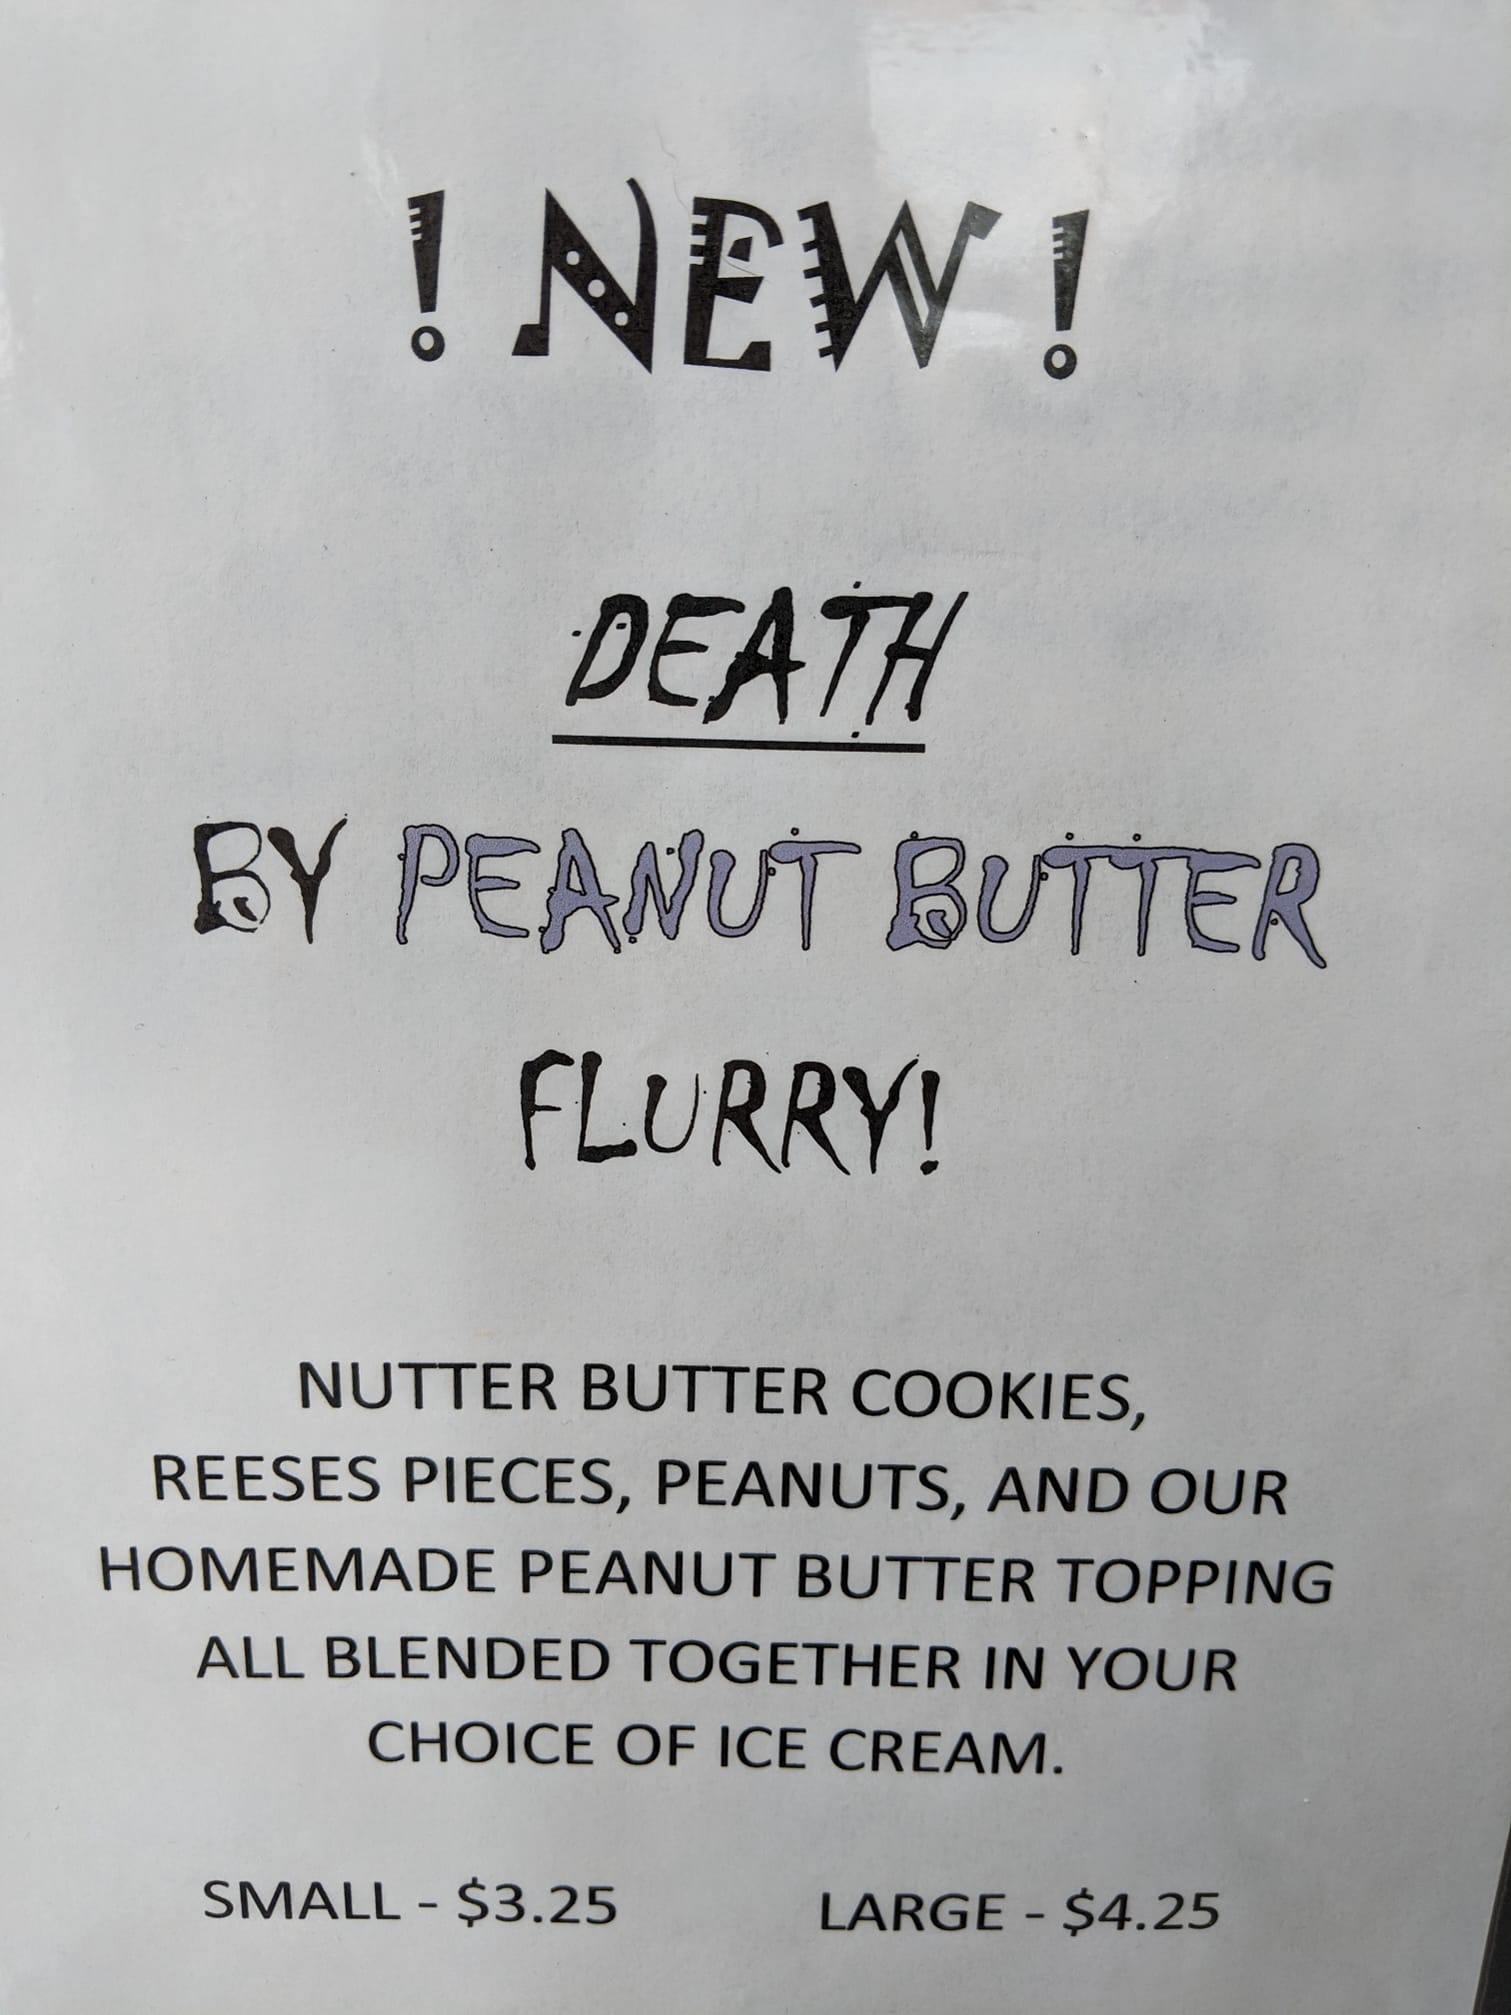 ! NEW !
DEATH
BY PEANUT BUTTER
FLURRY!
NUTTER BUTTER COOKIES,
REESES PIECES, PEANUTS, AND OUR
HOMEMADE PEANUT BUTTER TOPPING
ALL BLENDED TOGETHER IN YOUR
CHOICE OF ICE CREAM.
SMALL - $3.25 LARGE - $4.25